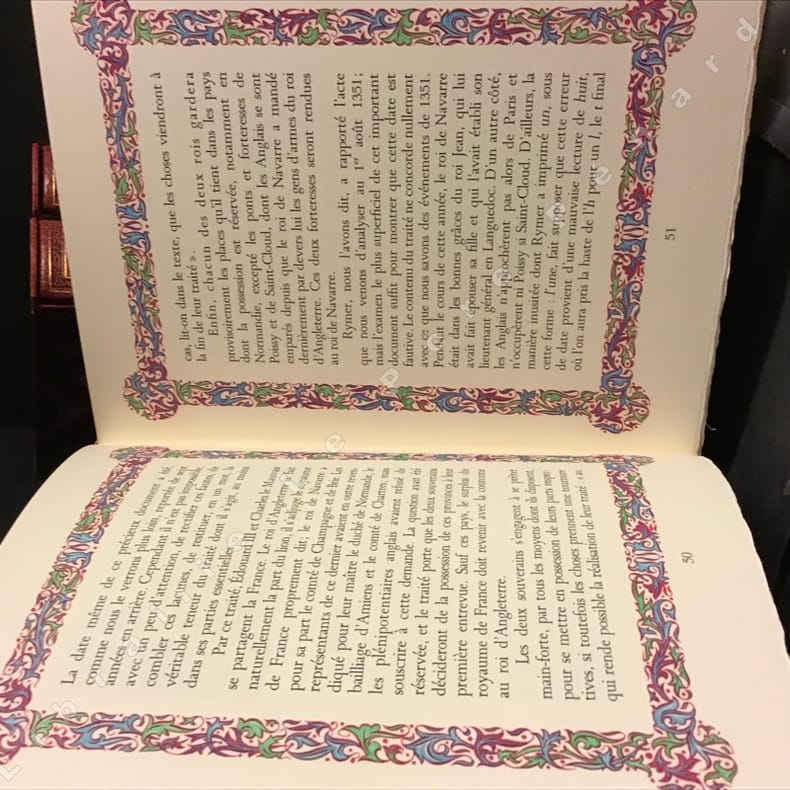 La date même de ce précieux document a été,
comme nous le verrons plus loin, reportée de sept
années en arrière. Cependant il n'est pas impossible,
avec un peu d'attention, de rectifier ces fautes, de
combler ces lacunes, de restituer, en un mot, la
véritable teneur du traité dont il s'agit, au moins
dans ses parties essentielles.
Par ce traité, Édouard III et Charles le Mauvais
se partagent la France. Le roi d'Angleterre se fait
naturellement la part du lion, il s'adjuge le royaume
de France proprement dit; le roi de Navarre a
pour sa part le comté de Champagne et de Brie. Les
représentants de ce dernier avaient en outre reven-
diqué pour leur maître le duché de Normandie, le
bailliage d'Amiens et le comté de Chartres, mais
les plénipotentiaires anglais avaient refusé de
souscrire à cette demande. La question avait été
réservée, et le traité porte que les deux souverains
décideront de la possession de ces provinces à leur
première entrevue. Sauf ces pays, le surplus du
royaume de France doit revenir avec la couronne
au roi d'Angleterre.
Les deux souverains s'engagent à se prêter
main-forte, par tous les moyens dont ils disposent,
pour se mettre en possession de leurs parts respec-
tives, si toutefois les choses prennent une tournure
qui rende possible la réalisation de leur traité: « au
50
cas, lit-on dans le texte, que les choses viendront à
la fin de leur traité ».
Enfin, chacun des deux rois gardera
provisoirement les places qu'il tient dans les pays
dont la possession est réservée, notamment en
Normandie, excepté les ponts et forteresses de
Poissy et de Saint-Cloud, dont les Anglais se sont
emparés depuis que le roi de Navarre a mandé
dernièrement par devers lui les gens d'armes du roi
d'Angleterre. Ces deux forteresses seront rendues
au roi de Navarre.
Rymer, nous l'avons dit, a rapporté l'acte
que nous venons d'analyser au 1er août 1351;
mais l'examen le plus superficiel de cet important
document suffit pour montrer que cette date est
fautive. Le contenu du traité ne concorde nullement
avec ce que nous savons des événements de 1351.
Pendant le cours de cette année, le roi de Navarre
était dans les bonnes grâces du roi Jean, qui lui
avait fait épouser sa fille et qui l'avait établi son
lieutenant général en Languedoc. D'un autre côté,
les Anglais n'approchèrent pas alors de Paris et
n'occupèrent ni Poissy ni Saint-Cloud. D'ailleurs, la
manière inusitée dont Rymer a imprimé un, sous
cette forme : l'une, fait supposer que cette erreur
de date provient d'une mauvaise lecture de huit,
où l'on aura pris la haste de l'h pour un l, le t final
51